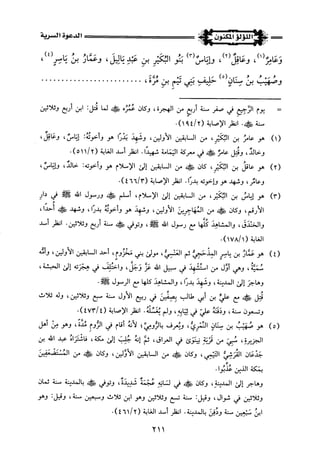 اللؤلؤ المكنون
الدعوة السرية
وَعَامِرٌ(١)، وعَاقِلٌ(٢)، وَإِيَاسٌ(٣) بَنُو البُكَيْرِ بنِ عَبْدِ يَالِيلَ، وعَمَّارُ بنُ يَاسِرٍ(٤)،
وصُهَيْبُ بنُ سِنَانٍ(٥) حَلِيفُ بَنِي تَيْمِ بنِ مُرَّةَ،
= يوم الرَّجِيع في صفر سنة أربع من الهجرة، وكان عُمُرُه لما قُتِلَ: ابن أربع وثلاثين
سنة. انظر الإصابة (١٩٤/٢)
(١) هو عامرُ بن البُكَيْر، من السابقين الأولين، وشَهِدَ بَدْرًا هو وأخوتُهُ: إياسٌ، وعاقِلٌ،
وخالدٌ، وقُتِلَ عامرٌ في معركة اليَمَامة شهيدًا. انظر أسد الغابة (٥١١/٢)
(٢) هو عاقل بن البُكَيْر، كان من السابقين إلى الإسلام هو وأخوته: خالدٌ، وإياسٌ،
وعامرٌ، وشهد هو وإخوته بدرًا. انظر الإصابة (٤٦٦/٣)
(٣) هو إياسُ بن البُكَيْر، من السابقين إلى الإسلام، أسلم ورسول الله ﷺ في دار
الأرقم، وكان من المُهَاجرين الأولين، وشهد هو وأخوتُهُ بدرًا، وشهد أُحدًا،
والخندق، والمشاهدَ كُلَّها مع رسول الله ﷺ، وتوفي سنة أربع وثلاثين. انظر أسد
الغابة (١٧٨/١)
(٤) هو عمَّارُ بن ياسر المِذْحَجِيُّ ثم العَنْسِيُّ، مولى بني مَخْزُوم، أحد السابقين الأولين، وأمُّه
سُمَيَّةُ، وهي أول من استُشْهِدَ في سبيل الله عَزَّ وَجَلَّ، واختُلِفَ في هِجْرَتِهِ إلى الحبشة،
وهاجرَ إلى المدينة، وشهد بَدْرًا، والمشاهدَ كلها مع الرسول ﷺ.
قُتِلَ مع علي بن أبي طالب بِصِفِّينَ في ربيع الأول سنة سبع وثلاثين، وله ثلاث
وتسعون سنة، ودفَنَهُ عليٌّ في ثِيَابِهِ، ولم يُغَسِّلْهُ. انظر الإصابة (٤٧٣/٤)
(٥) هو صُهَيْب بن سِنَان النَّمَرِيُّ، ويُعرف بالرُّومِيِّ، لأنه أقام في الرُّوم مُدَّةً، وهو من أهل
الجزيرة، سُبِيَ من قَرْيَةِ نِينَوَى في العراق، ثمَّ إنه جُلِبَ إلى مكة، فاشتَرَاهُ عبد الله بن
جُدْعَان القُرَشِيُّ التَّيْمِي، وكان من السابقين الأولين، وكان من المُسْتَضْعَفِينَ
بمَكة الذين عُذِّبوا.
وهاجر إلى المدينة، وكان في لسانِهِ عُجْمَةٌ شَدِيدَةٌ، وتوفي بالمدينة سنة ثمان
وثلاثين في شوال، وقيل: سنة تسع وثلاثين وهو ابن ثلاث وسبعين سنة، وقيل: وهو
ابنُ سَبْعِين سنة ودُفِنَ بالمدينة. انظر أسد الغابة (٤٦١/٢)
٢١١